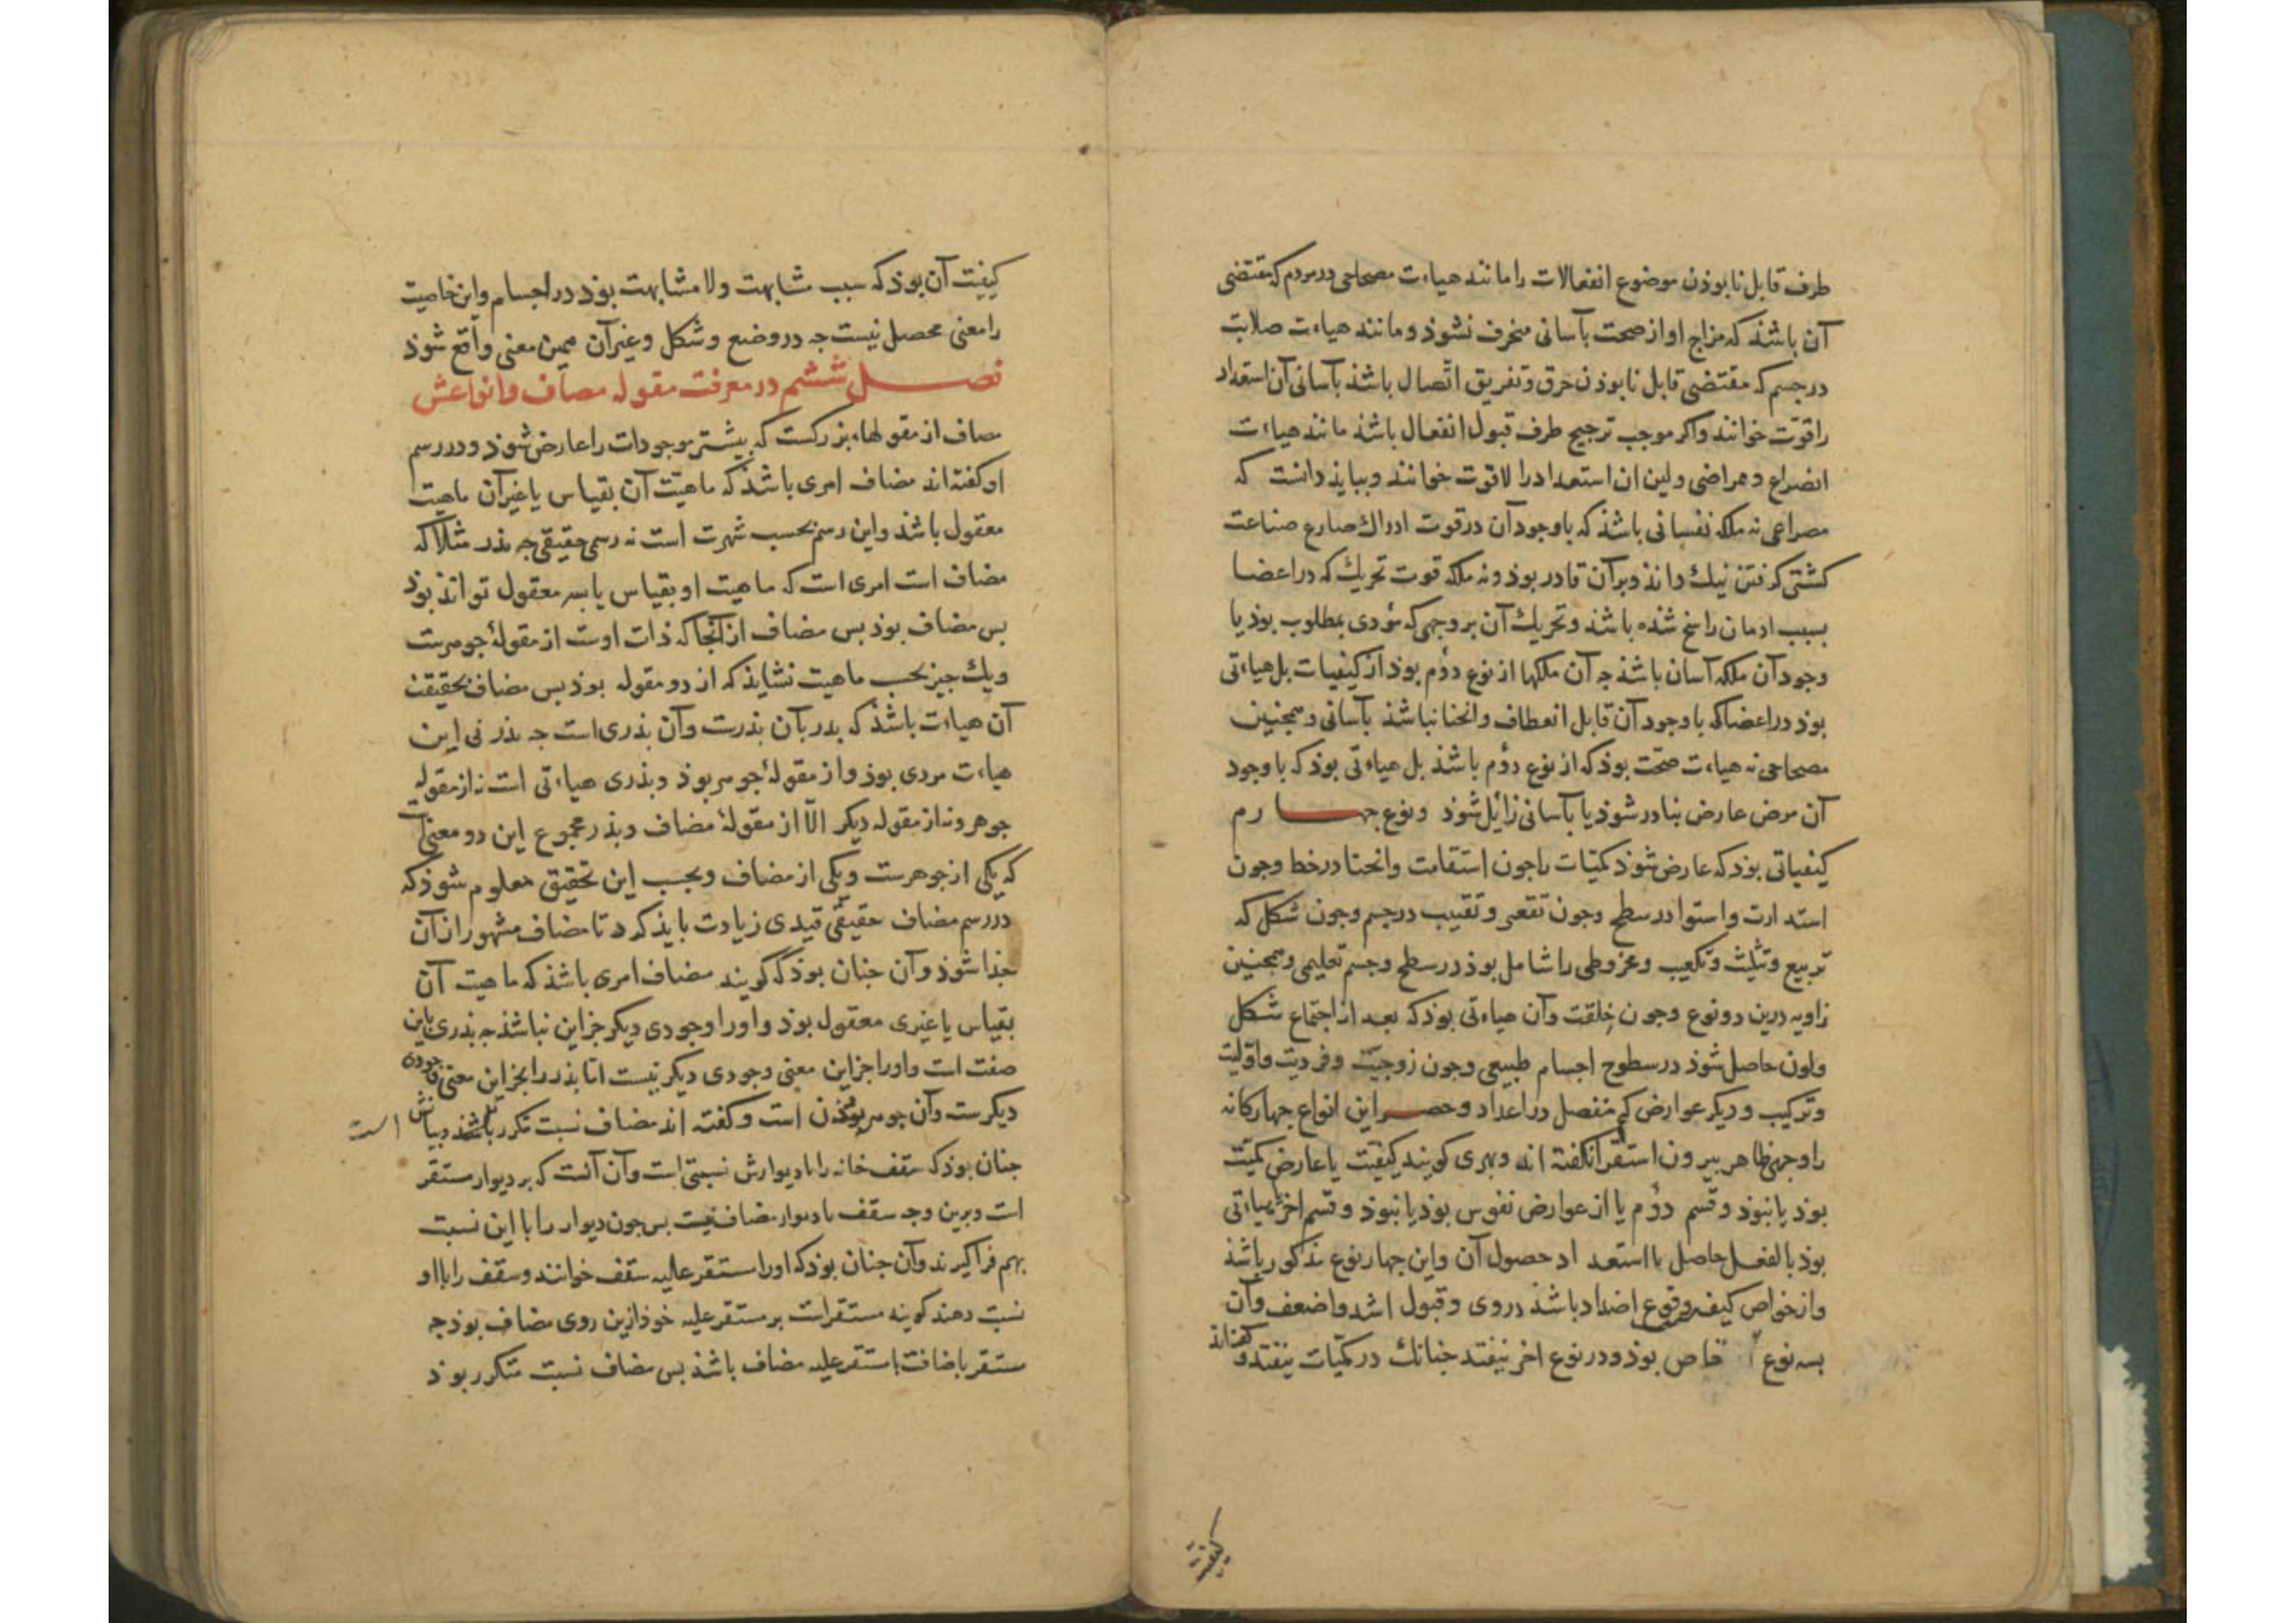 طرف قابل نابوذن موضوع انفعالات را مانند هیاءت مصحاحی در مردم که مقتضی
آن باشذ که مزاج او از صحت بآسانی منحرف نشوذ و مانند هیاءت صلابت
در جسم که مقتضی قابل نابوذن خرق و تفریق اتّصال باشذ بآسانی آن استعداد
را قوّت خوانند و اکر موجب ترجیح طرف قبول انفعال باشذ مانند هیاءت
انصراع و ممراضی و لین ان استعداد را لا قوت خوانند و ببایذ دانست که
مصراعی نه ملکه نفسانی باشذ که باوجود آن در قوت ادراك صارع صناعت
کشتی کرفتن نیك داند و بر آن قادر بوذ و نه ملکه قوت تحریك که در اعضا
بسبب ادمان راسخ شذه باشذ و تحریك آن بر وجهی که مؤدی بمطلوب بوذ یا
وجود آن ملکه آسان باشذ جه آن ملکها از نوع دؤم بوذ از کیفیات بل هیاءتی
بوذ در اعضا که باوجود آن قابل انعطاف و انحنا نباشذ بآسانی و همجنین
مصحاحی نه هیاءت صحّت بوذ که از نوع دؤم باشذ بل هیاءتی بوذ که باوجود
آن مرض عارض بنادر شوذ یا بآسانی زایل شوذ و نوع جهارم
کیفیاتی بوذ که عارض شوذ کمّیات را جون استقامت و انحنا در خط و جون
استدارت و استوا در سطح و جون تقعیر و تقبیب در جسم و جون شکل که
تربیع و تثلیث و تکعیب و مخروطی را شامل بوذ در سطح و جسم تعلیمی و همجنین
زاویه درین دو نوع و جون خلقت و آن هیاءتی بوذ که بعد از اجتماع شکل
و لون حاصل شوذ در سطوح اجسام طبیعی و جون زوجیّت و فردیت و اوّلیت
و ترکیب و دیکر عوارض کم منفصل در اعداد و حصر این انواع جهارکانه
را وجهی ظاهر بیرون استقرا نکفته اند و بهری کویند کیفیّت یا عارض کمیّت
بوذ یا نبوذ و قسم دؤم یا از عوارض نفوس بوذ یا نبوذ و قسم اخر یا هیاءتی
بوذ بالفعل حاصل یا استعداد حصول آن و این جهار نوع مذکور باشذ
و از خواص کیف وقوع اضداد باشذ در وی و قبول اشد و اضعف و آن
بسه نوع خاص بوذ و در نوع اخر نیفتد جنانك در کمّیات نیفتد و کفته اند
کیفیت
کیفیّت آن بوذ که سبب مشابهت و لا مشابهت بوذ در اجسام و این خاصیت
را معنی محصل نیست جه در وضع و شکل و غیر آن همین معنی واقع شوذ
فصل ششم در معرفت مقوله مضاف و انواعش
مضاف از مقولهاء بزرکست که بیشتر موجودات را عارض شوذ و در رسم
او کفته اند مضاف امری باشذ که ماهیّت آن بقیاس با غیر آن ماهیت
معقول باشذ و این رسم بحسب شهرت است نه رسمی حقیقی جه بذر مثلا که
مضاف است امری است که ماهیت او بقیاس با بسر معقول تواند بوذ
بس مضاف بوذ بس مضاف از آنجا که ذات اوست از مقولهٔ جوهرست
و یك جیز بحسب ماهیت نشایذ که از دو مقوله بوذ بس مضاف بحقیقت
آن هیاءت باشذ که بدر بآن بذرست و آن بذری است جه بذر نی این
هیاءت مردی بوذ و از مقولهٔ جوهر بوذ و بذری هیاءتی است نه از مقوله
جوهر و نه از مقوله دیکر الّا از مقولهٔ مضاف و بذر مجموع این دو معنیست
که یکی از جوهرست و یکی از مضاف و بحسب این تحقیق معلوم شوذ که
در رسم مضاف حقیقی قیدی زیادت بایذ کرد تا مضاف مشهور از آن
جذا شوذ و آن جنان بوذ که کویند مضاف امری باشذ که ماهیت آن
بقیاس با غیری معقول بوذ و او را وجودی دیکر جز این نباشذ جه بذری باین
صفت است و او را جز این معنی وجودی دیکر نیست امّا بذر را بجز این معنی وجودی
دیکرست و آن جوهر بوذن است و کفته اند مضاف نسبت متکرر باشذ و بیانش است
جنان بوذ که سقف خانه را با دیوارش نسبتی است و آن آنست که بر دیوار مستقر
است و برین وجه سقف با دیوار مضاف نیست بس جون دیوار را با این نسبت
بهم فرا کیرند و آن جنان بوذ که او را مستقر علیه سقف خوانند و سقف را با او
نسبت دهند کویند مستقراست بر مستقر علیه خوذ ازین روی مضاف بوذ جه
مستقر باضافت با مستقر علیه مضاف باشذ بس مضاف نسبت متکرر بوذ